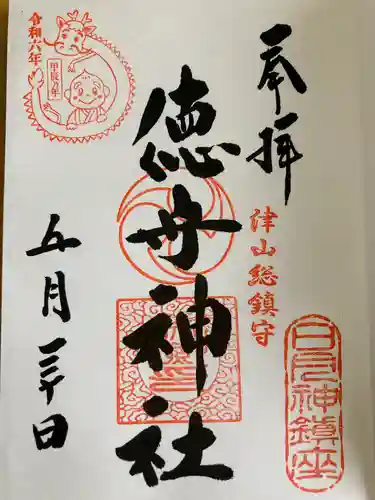 奉拝
津山総鎮守
日月神鎮座
徳守神社
令和六年
甲辰年
五月三十日